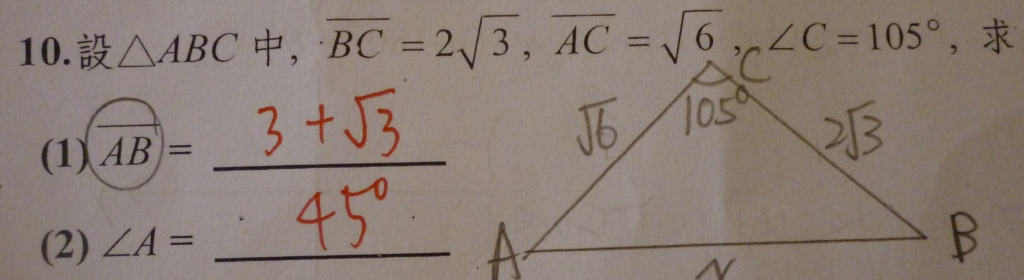 10. 設△ABC 中, \overline{BC} = 2√3, \overline{AC} = √6, ∠C = 105°, 求
(1) \overline{AB} = 3+√3
(2) ∠A = 45°
C
105°
√6
2√3
A
B